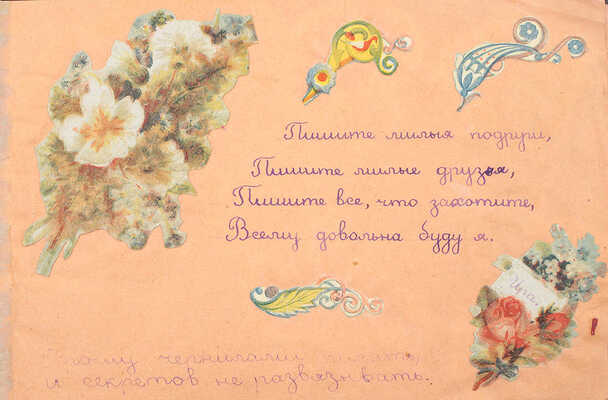 Пишите милыя подруги,
Пишите милые друзья,
Пишите все, что захотите,
Всему довольна буду я.
Прошу чернилами писать,
и секретов не развязывать.